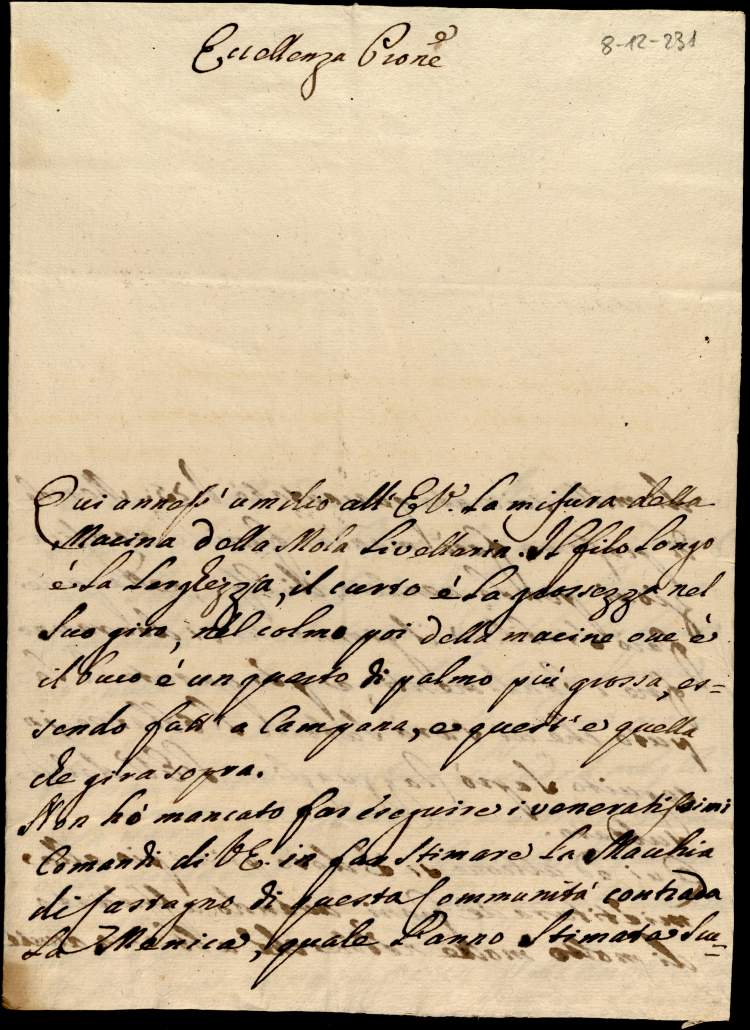 Eccellenza Prone
8-12-231
Qui anness' umilio all' E.V. La misura della
Macina della Mola Livellaria. Il filo Longo
é La Larghezza, il curto é La grossezza nel
suo giro, nel colmo poi della macine ove è
il buco é un quarto di palmo più grossa, es=
sendo fatt' a Campana, e quest' e quella
che gira sopra.
Non hó mancato far éseguire i veneratissimi
Comandi di V.E. in far stimare La Macchia
di Castagno di questa Communitá contrada
La Manica, quale L'anno Stimata Scu=